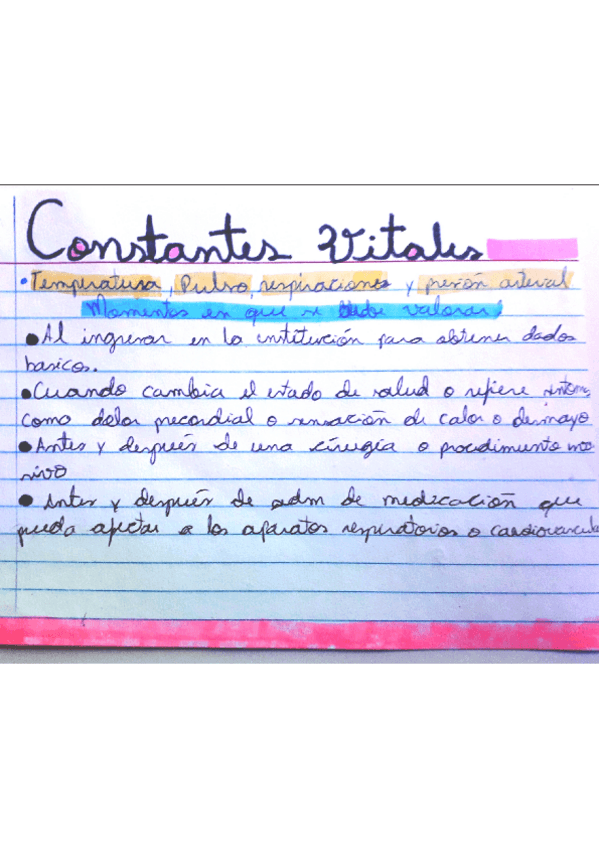 Constantes Vitales
• Temperatura, Pulso, respiraciones y presión arterial
Momentos en que se debe valorar
● Al ingresar en la institución para obtener dados
basicos.
● Cuando cambia el estado de salud o refiere sintomas
como dolor precordial o sensación de calor o desmayo
● Antes y después de una cirugía o procedimiento
● Antes y después de adm de medicación que
pueda afectar a los aparatos respiratorios o cardiovascula